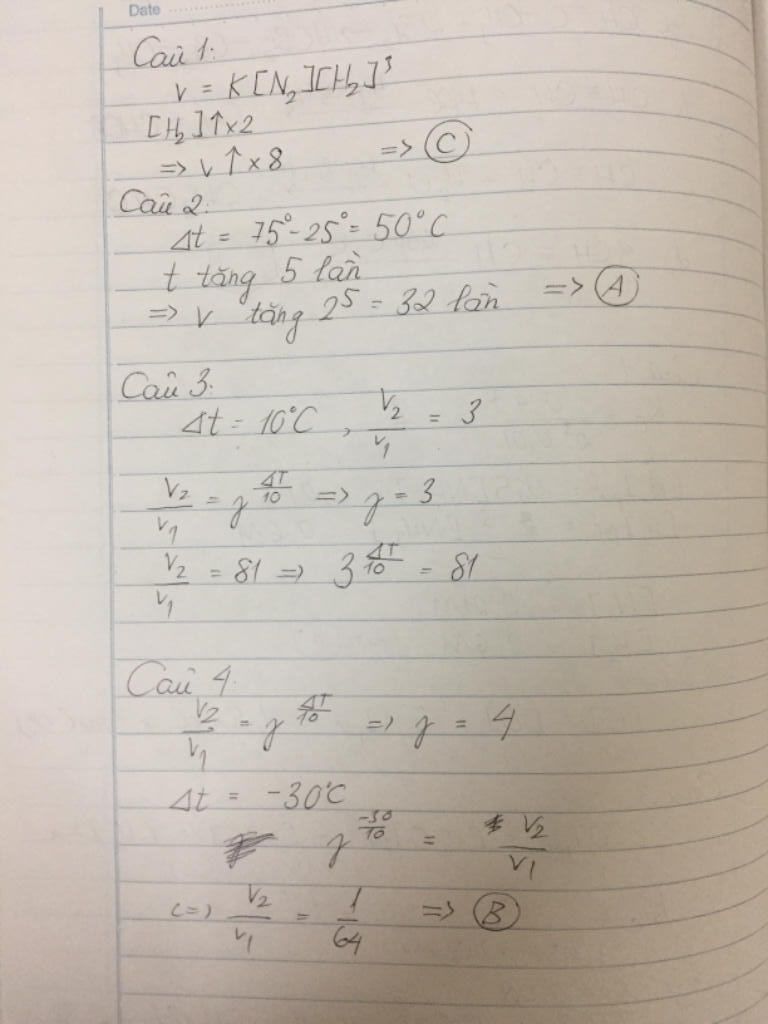 Date
Câu 1:
v = K[N₂][H₂]³
[H₂]↑×2
=> v ↑ × 8 => C
Câu 2:
Δt = 75° - 25° = 50°C
t tăng 5 lần
=> v tăng 2⁵ = 32 lần => A
Câu 3:
Δt = 10°C , V₂/V₁ = 3
V₂/V₁ = γ^(ΔT/10) => γ = 3
V₂/V₁ = 81 => 3^(ΔT/10) = 81
Câu 4:
V₂/V₁ = γ^(ΔT/10) => γ = 4
Δt = -30°C
γ^(-30/10) = V₂/V₁
<=> V₂/V₁ = 1/64 => B